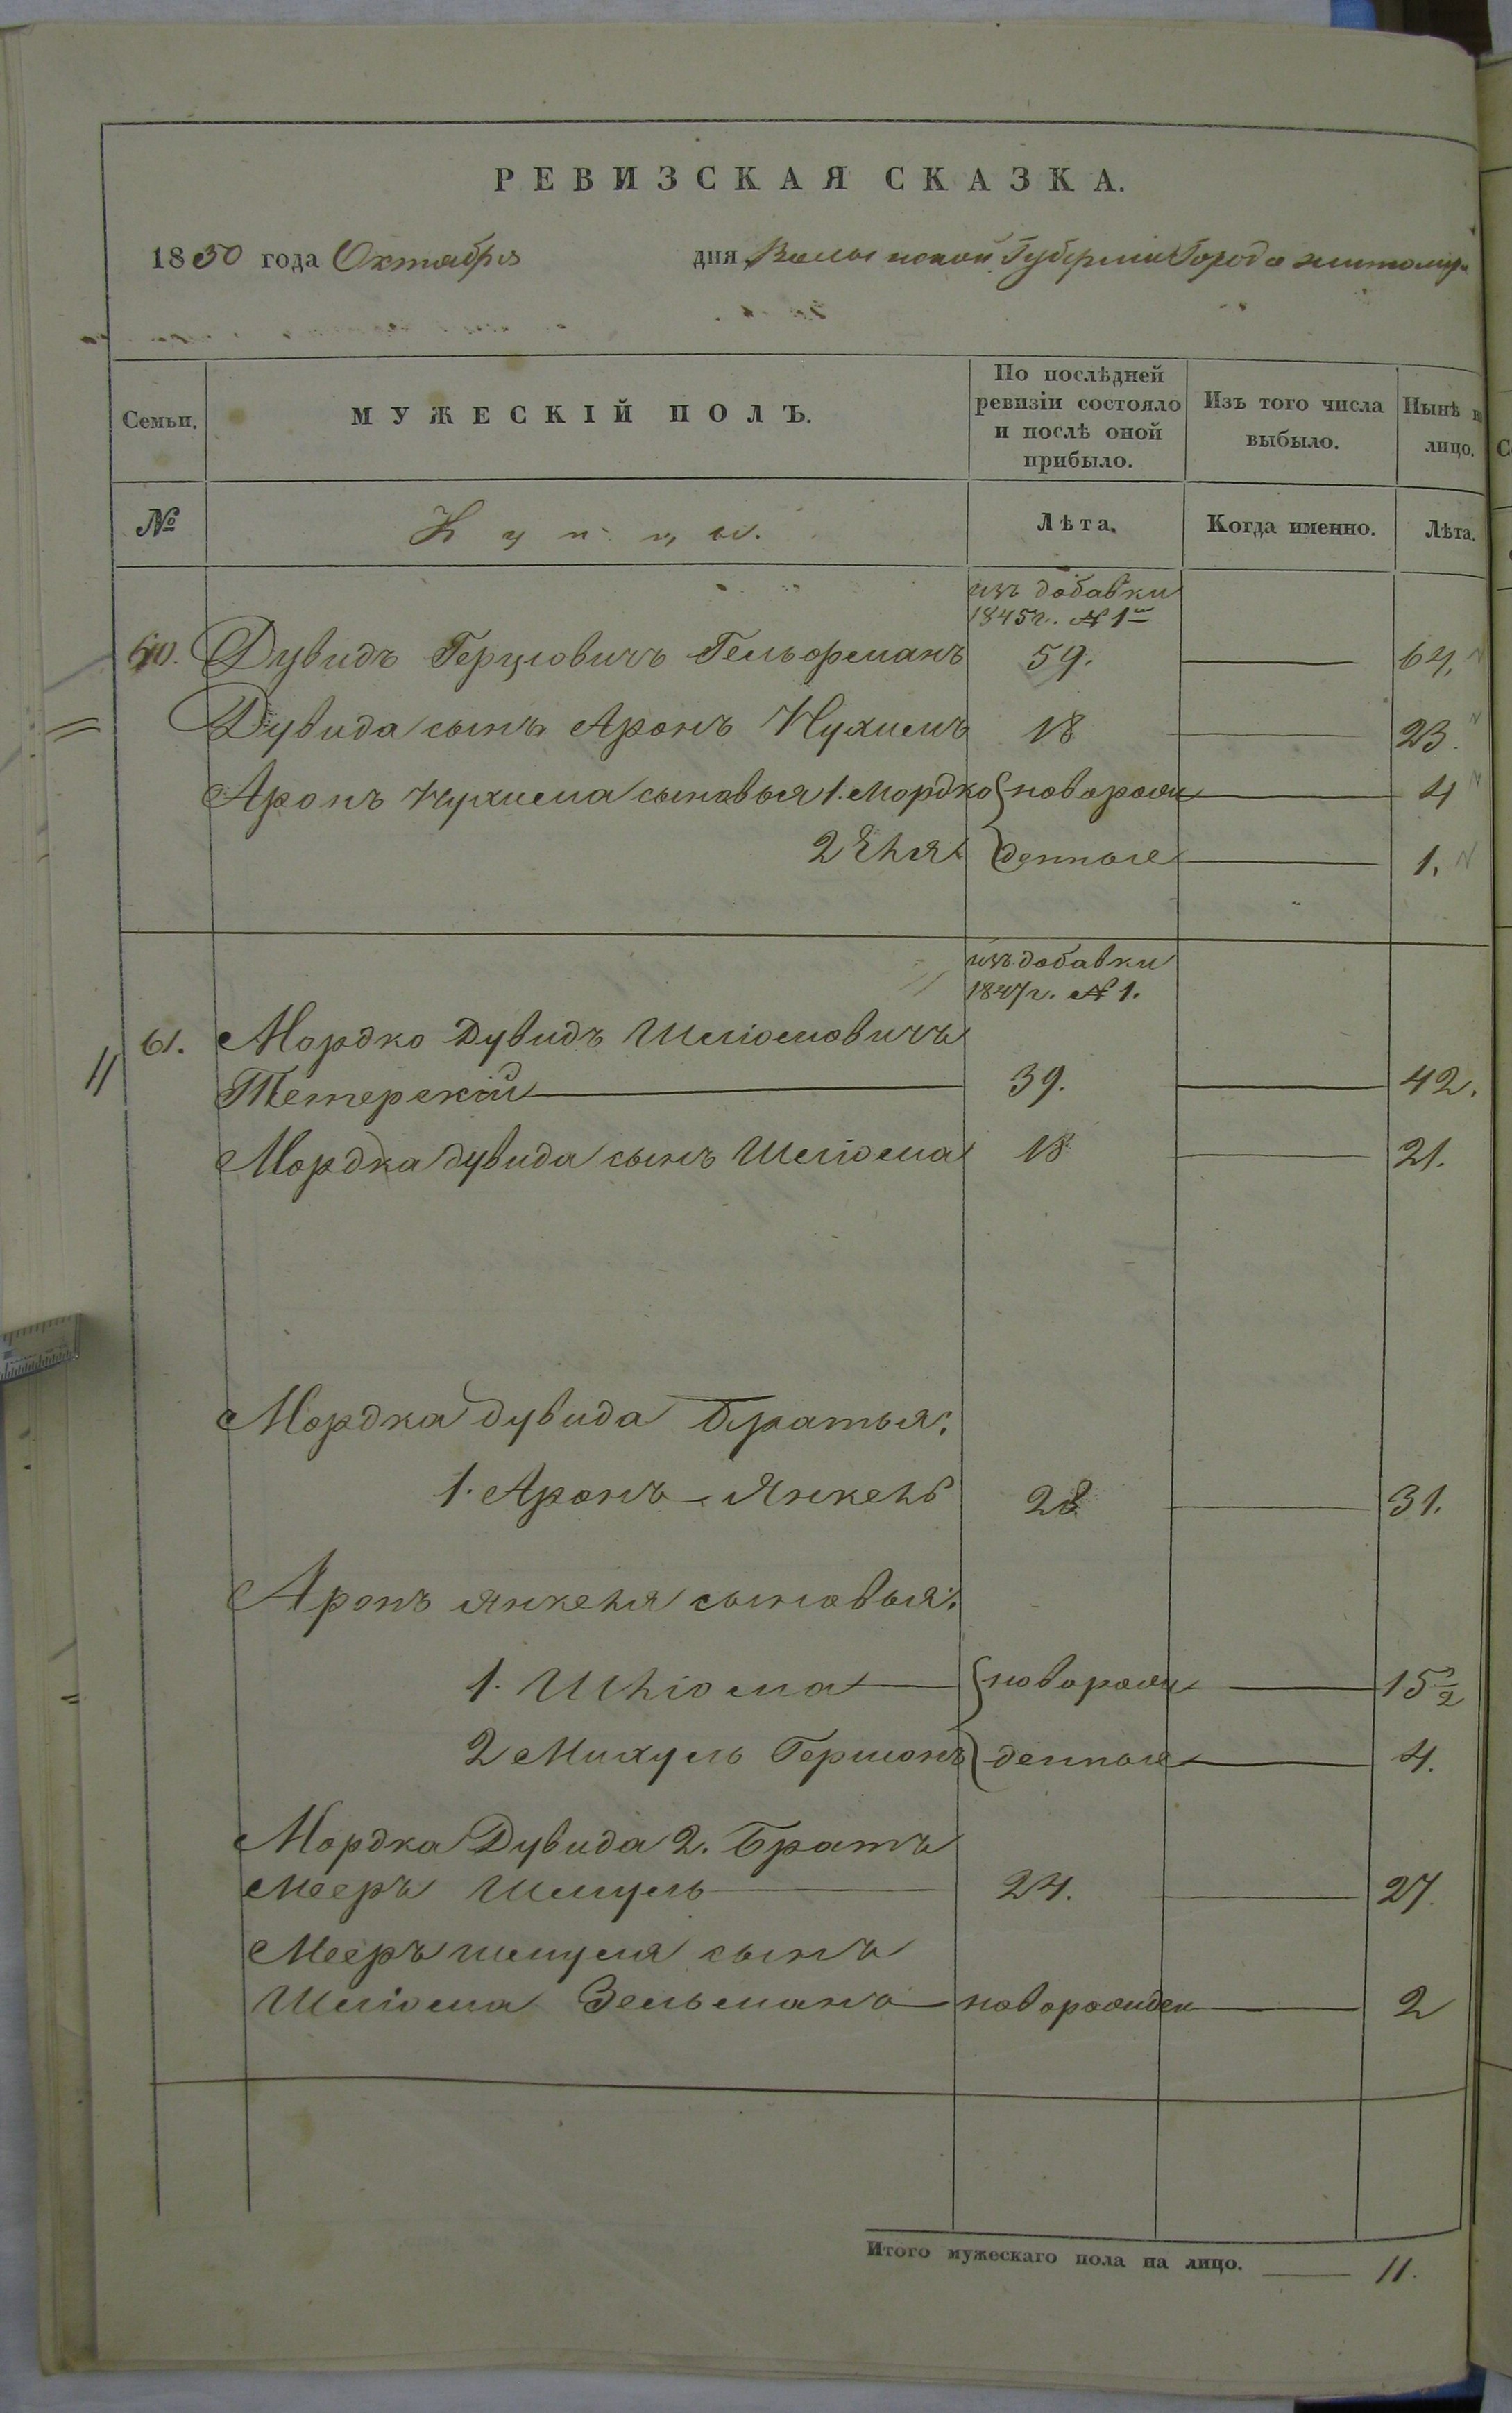 РЕВИЗСКАЯ СКАЗКА.
1850 года Октября дня Волынской Губернии Города Житомира
Семьи. МУЖЕСКІЙ ПОЛЪ. По послѣдней ревизіи состояло и послѣ оной прибыло. Изъ того числа выбыло. Нынѣ на лицо.
№ Купцы. Лѣта. Когда именно. Лѣта.
изъ добавки
1845г. № 1й
60. Дувидъ Герцовичъ Гельфманъ 59. 64.
Дувида сынъ Аронъ Нухимъ 18 23.
Аронъ Нухима сыновья 1. Мордко новорож 4
2 Эля денные 1.
изъ добавки
1847г. № 1.
61. Мордко Дувидъ Шліомовичъ
Тетерскій 39. 42.
Мордка Дувида сынъ Шліома 18 21.
Мордка Дувида Братья:
1. Аронъ-Янкель 28 31.
Аронъ Янкеля сыновья:
1. Шліома новорож 1 5/2
2 Михуль Гершонъ денные 4.
Мордка Дувида 2. Братъ
Мееръ Шмуль 24. 27.
Мееръ Шмуля сынъ
Шліома Зельманъ новорожден 2
Итого мужескаго пола на лицо. 11.